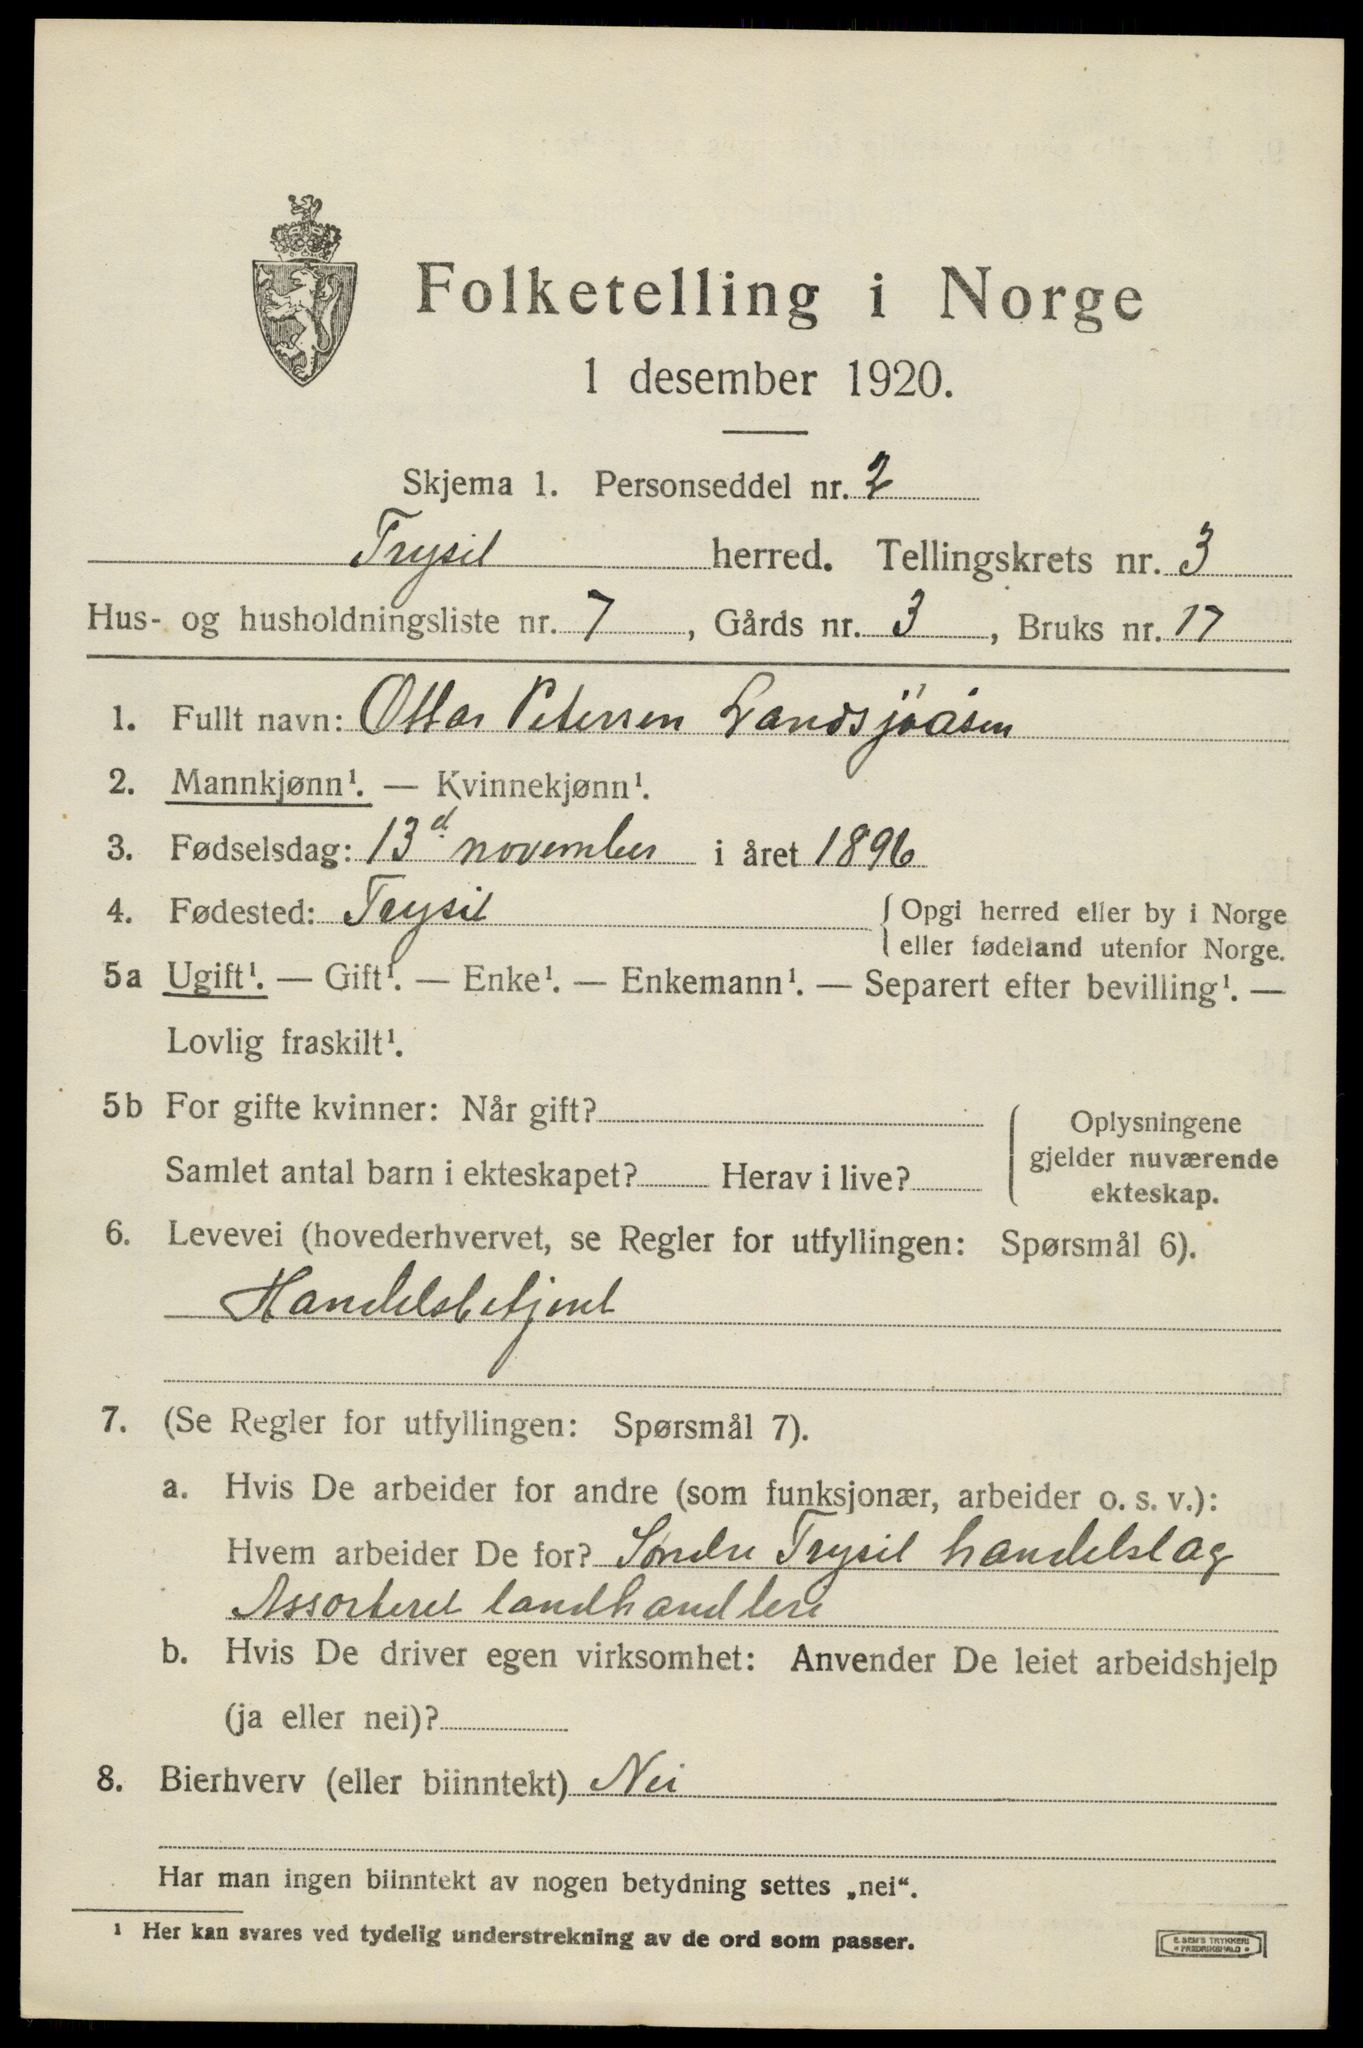 Folketelling i Norge
1 desember 1920.
Skjema 1. Personseddel nr. 2
Trysil herred. Tellingskrets nr. 3
Hus- og husholdningsliste nr. 7, Gårds nr. 3, Bruks nr. 17
1. Fullt navn: Ottar Petersen Landsjøåsen
2. Mannkjønn¹. — Kvinnekjønn¹.
3. Fødselsdag: 13d november i året 1896
4. Fødested: Trysil { Opgi herred eller by i Norge
eller fødeland utenfor Norge.
5a Ugift¹. — Gift¹. — Enke¹. — Enkemann¹. — Separert efter bevilling¹. —
Lovlig fraskilt¹.
5b For gifte kvinner: Når gift?
Samlet antal barn i ekteskapet? Herav i live?
Oplysningene
gjelder nuværende
ekteskap.
6. Levevei (hovederhvervet, se Regler for utfyllingen: Spørsmål 6).
Handelsbetjent
7. (Se Regler for utfyllingen: Spørsmål 7).
a. Hvis De arbeider for andre (som funksjonær, arbeider o. s. v.):
Hvem arbeider De for? Søndre Trysil handelslag
Assorteret landhandleri
b. Hvis De driver egen virksomhet: Anvender De leiet arbeidshjelp
(ja eller nei)?
8. Bierhverv (eller biinntekt) Nei
Har man ingen biinntekt av nogen betydning settes „nei“.
¹ Her kan svares ved tydelig understrekning av de ord som passer.
E. SEM'S TRYKKERI
FREDRIKSHALD